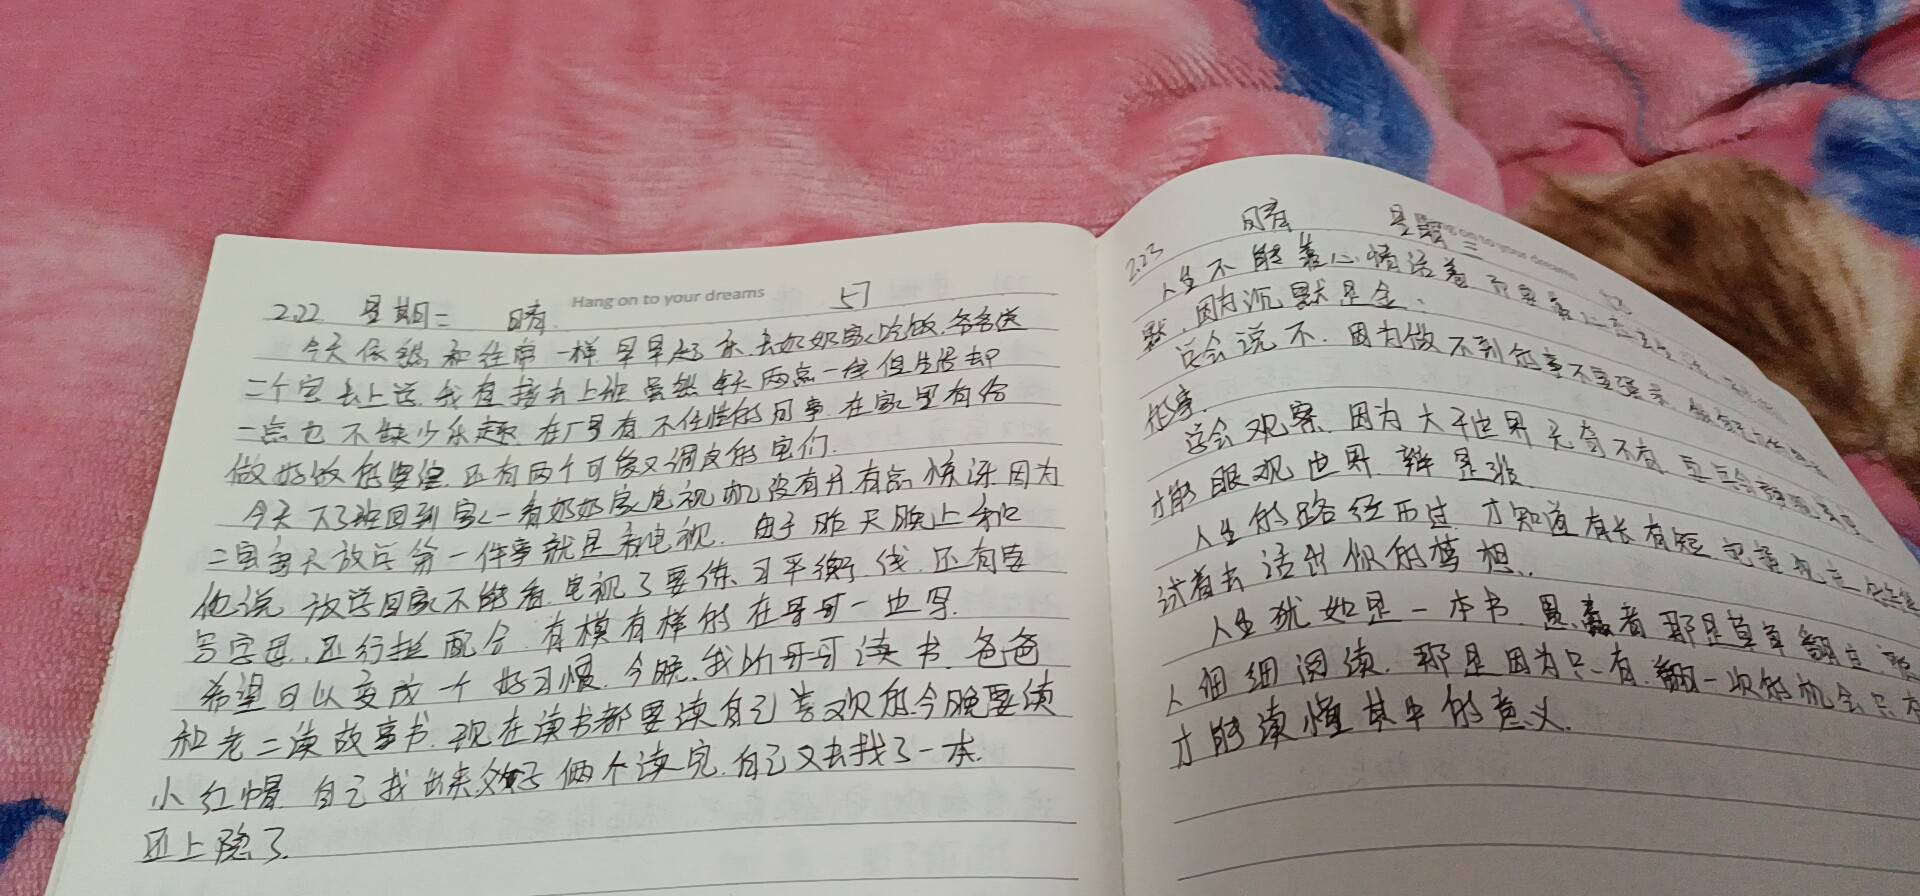 Hang on to your dreams
2.22 星期二 晴 57
今天依然和往常一样早早起床.去奶奶家吃饭.爸爸送
二个宝去上学.我直接去上班虽然每天两点一线但生活却
一点也不缺少乐趣.在厂里有不任性的同事.在家里有给
做好饭的婆婆.还有两个可爱又调皮的宝们.
今天下了班回到家一看奶奶家电视机没有开.有点惊讶因为
二宝每天放学第一件事就是看电视.由于昨天晚上和
他说放学回家不能看电视了要练习平衡线.还有要
写字母.还行挺配合.有模有样的在哥哥一边写.
希望可以变成一个好习惯.今晚.我 哥哥读书.爸爸
和老二读故事书.现在读书都要读自己喜欢的.今晚要读
小红帽.自己找出来 俩个读完.自己又去找了一本.
还上瘾了.
2.23 晴 星期三
人生不能靠心情活着
默.因为沉默是金.
学会说不.因为做不到的事不要强求
的事.
学会观察.因为大千世界无奇不有.
才能眼观世界.辨是非.
人生的路经历过.才知道有长有短
试着去活出你的梦想..
人生犹如是一本书.愚蠢者 那是草草翻过
人细细阅读.那是因为只有翻一次的机会.只有
才能读懂其中的意义.